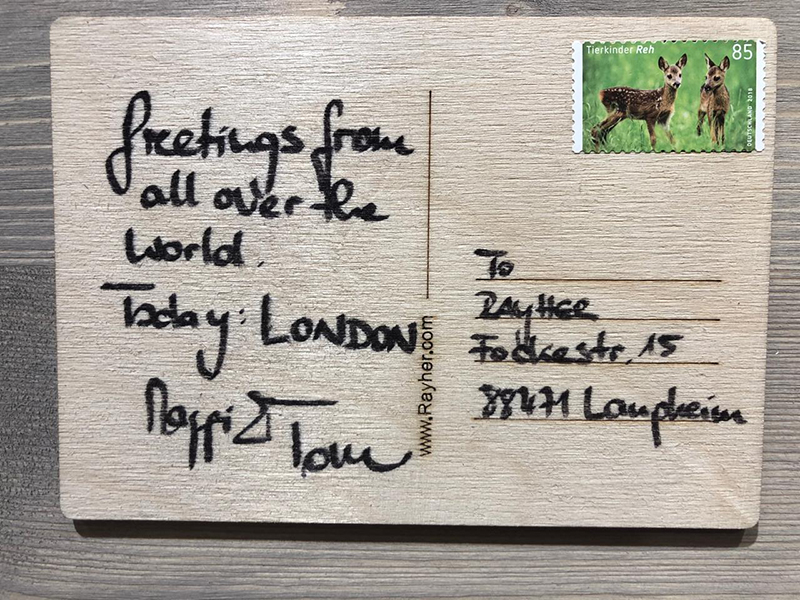 Greetings from
all over the
World.
Today: LONDON
& Tom
www.Rayher.com
Tierkinder Reh
85
DEUTSCHLAND 2018
To
RAYHER
Fockestr. 15
88471 Laupheim